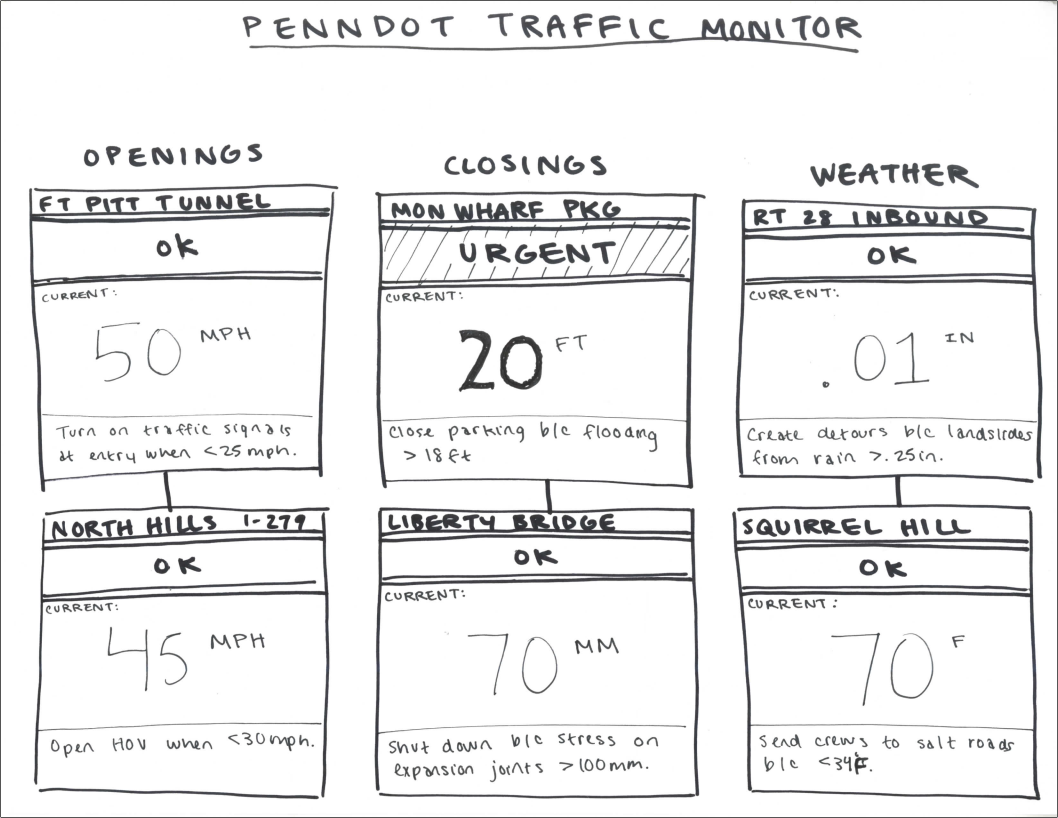 PENNDOT TRAFFIC MONITOR
OPENINGS
FT PITT TUNNEL
OK
CURRENT:
50 MPH
Turn on traffic signals
at entry when <25mph.
NORTH HILLS I-279
OK
CURRENT:
45 MPH
Open HOV when <30mph.
CLOSINGS
MON WHARF PKG
URGENT
CURRENT:
20 FT
Close parking b/c flooding
> 18ft
LIBERTY BRIDGE
OK
CURRENT:
70 MM
Shut down b/c stress on
expansion joints >100mm.
WEATHER
RT 28 INBOUND
OK
CURRENT:
.01 IN
Create detours b/c landslides
from rain >.25in.
SQUIRREL HILL
OK
CURRENT:
70 F
Send crews to salt roads
b/c <34F.